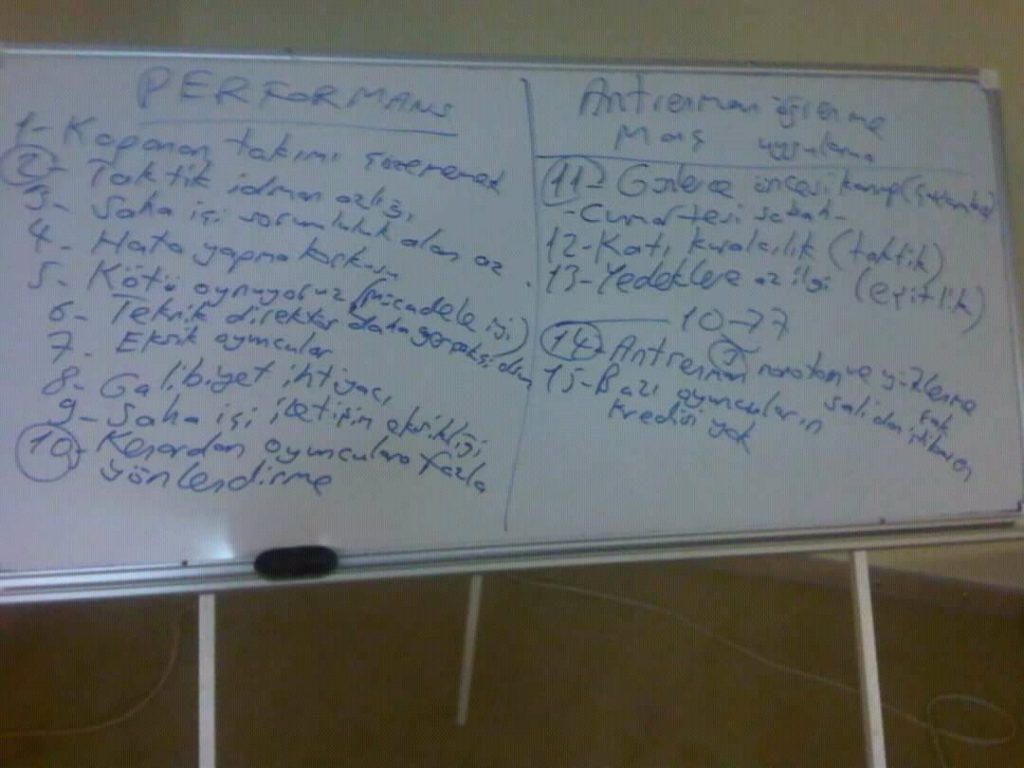 PERFORMANS
1- Kapanan takımı çözememek
2- Taktik idman azlığı
3- Saha içi sorumluluk alan az
4- Hata yapma korkusu
5- Kötü oynuyoruz (mücadele iyi)
6- Teknik direktör daha gerçekçi
7- Eksik oyuncular
8- Galibiyet ihtiyacı
9- Saha içi iletişim eksikliği
10- Kenardan oyunculara fazla
yönlendirme
Antrenman öğrenme
Maç uygulama
11- öncesi kamp
- Cumartesi sabah -
12- Katı kuralcılık (taktik)
13- Yedeklere az ilgi (eşitlik)
10 → 7
14- Antrenman monoton ve yüklenme
15- Bazı oyuncuların
kredisi yok